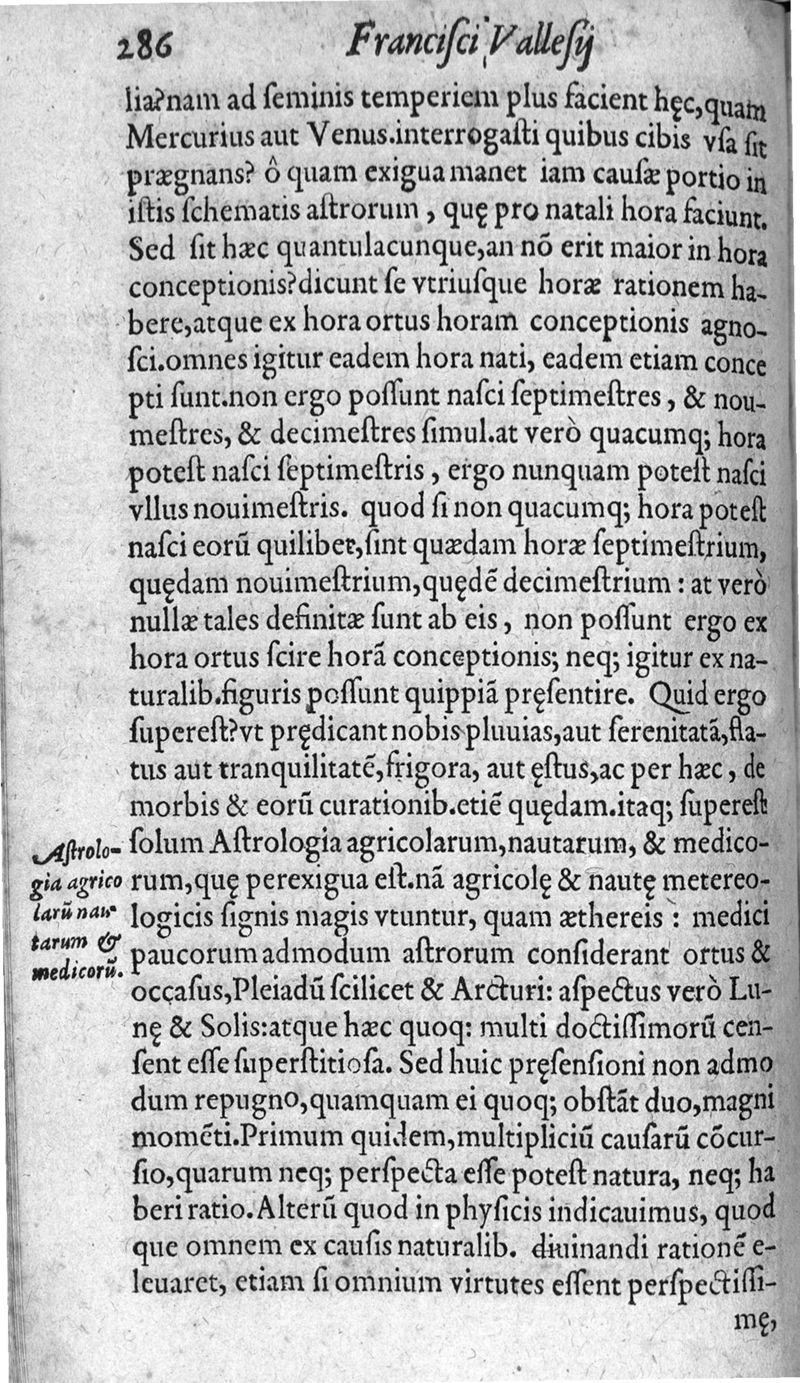 286 Franciſci Valleſij
lia?nam ad ſeminis temperiem plus facient hęc,quam
Mercurius aut Venus.interrogaſti quibus cibis vſa ſit
prægnans? ô quam exigua manet iam cauſæ portio in
iſtis ſchematis aſtrorum , quę pro natali hora faciunt.
Sed ſit hæc quantulacunque,an nõ erit maior in hora
conceptionis?dicunt ſe vtriuſque horæ rationem ha-
bere,atque ex hora ortus horam conceptionis agno-
ſci.omnes igitur eadem hora nati, eadem etiam conce
pti ſunt.non ergo poſſunt naſci ſeptimeſtres , & nou-
meſtres, & decimeſtres ſimul.at verò quacumq; hora
poteſt naſci ſeptimeſtris , ergo nunquam poteſt naſci
vllus nouimeſtris. quod ſi non quacumq; hora poteſt
naſci eorũ quilibet,ſint quædam horæ ſeptimeſtrium,
quędam nouimeſtrium,quędẽ decimeſtrium : at verò
nullæ tales definitæ ſunt ab eis , non poſſunt ergo ex
hora ortus ſcire horã conceptionis; neq; igitur ex na-
turalib.figuris poſſunt quippiã pręſentire. Quid ergo
ſupereſt?vt prędicant nobis pluuias,aut ſerenitatã,fla-
tus aut tranquilitatẽ,frigora, aut ęſtus,ac per hæc , de
morbis & eorũ curationib.etiẽ quędam.itaq; ſupereſt
ſolum Aſtrologia agricolarum,nautarum, & medico-
rum,quę perexigua eſt.nã agricolę & nautę metereo-
logicis ſignis magis vtuntur, quam æthereis : medici
paucorum admodum aſtrorum conſiderant ortus &
occaſus,Pleiadũ ſcilicet & Arcturi: aſpectus verò Lu-
nę & Solis:atque hæc quoq: multi doctiſſimorũ cen-
ſent eſſe ſuperſtitioſa. Sed huic pręſenſioni non admo
dum repugno,quamquam ei quoq; obſtãt duo,magni
momẽti.Primum quidem,multipliciũ cauſarũ cõcur-
ſio,quarum neq; perſpecta eſſe poteſt natura, neq; ha
beri ratio.Alterũ quod in phyſicis indicauimus, quod
que omnem ex cauſis naturalib. diuinandi rationẽ e-
leuaret, etiam ſi omnium virtutes eſſent perſpectiſſi-
mę,
Aſtrolo-
gia agrico
larũ nau-
tarum &
medicorũ.